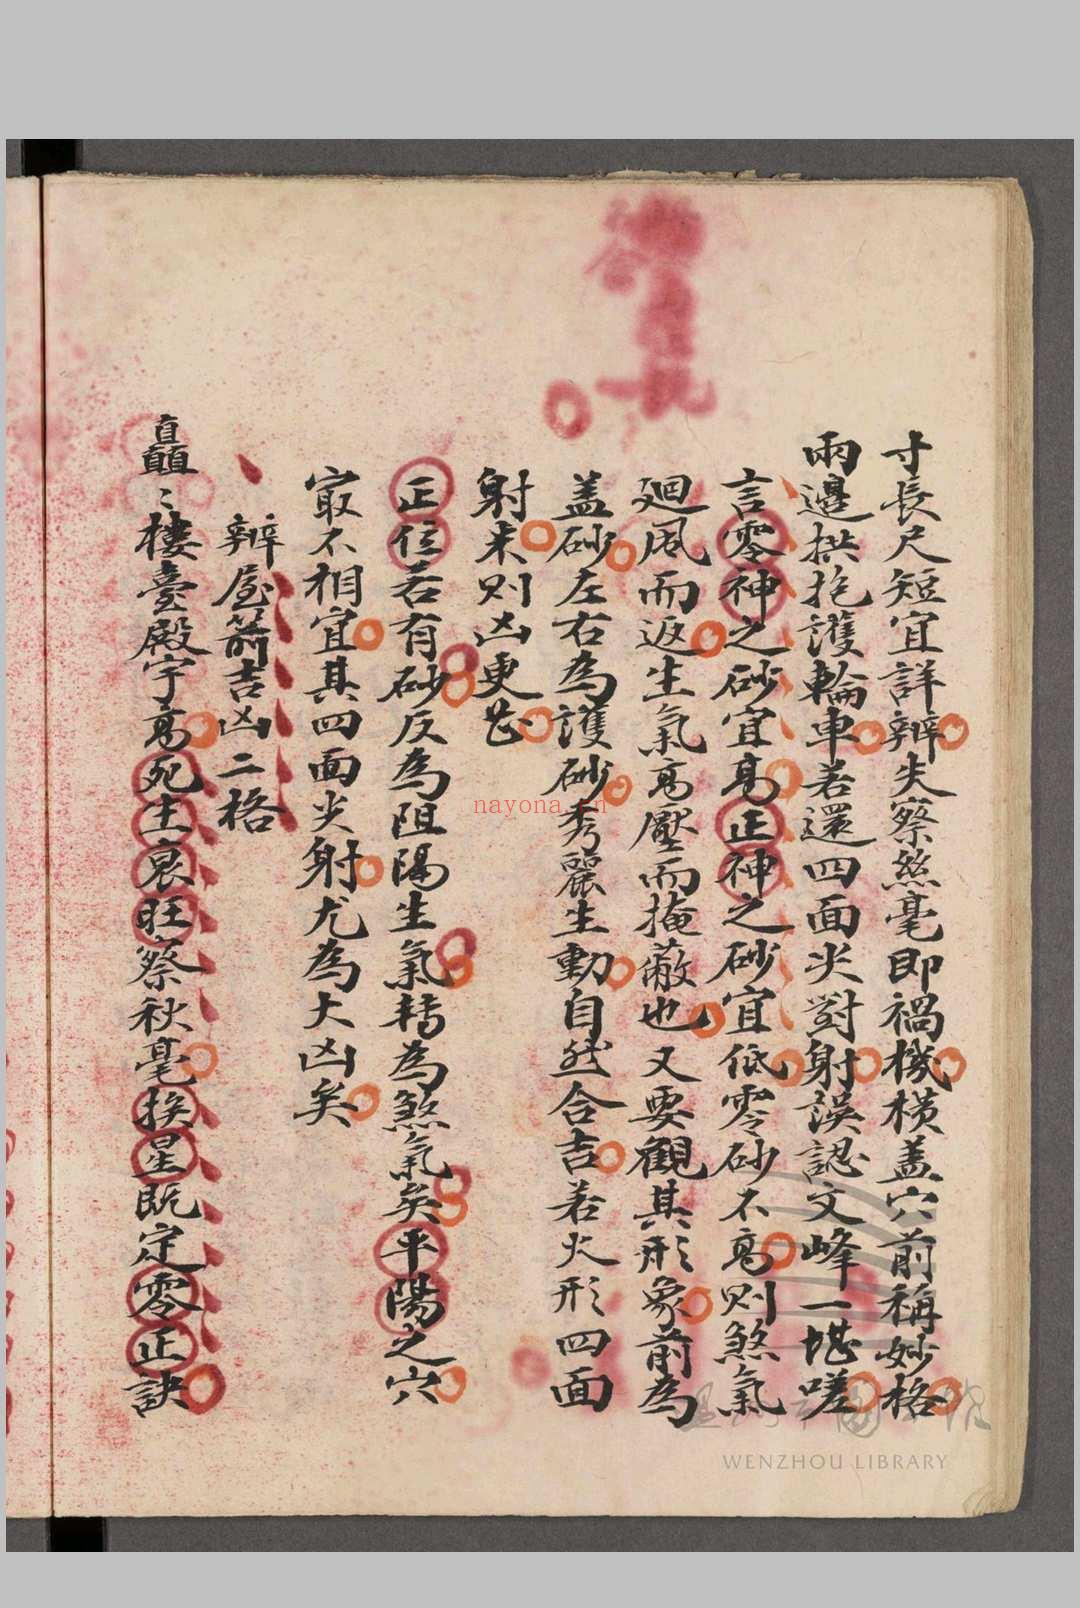 寸長尺短宜詳辯失察絲毫即禍機橫盖穴前稱妙格
兩邊拱抱護輪車若還四面尖對射誤認文峰一堪嗟
言零神之砂宜髙正神之砂宜低零砂不髙則煞氣
廻風而返生氣髙壓而掩蔽也又要觀其形象前為
盖砂左右為護砂秀麗生動自然合吉若火形四面
射来則凶更甚
正位若有砂反為阻陽生氣轉為煞氣矣平陽之穴
㝡不相宜其四面尖射尤為大凶矣
辯屋前吉凶二格
矗矗樓臺殿宇髙死生衰旺察秋毫挨星既定零正訣
WENZHOU LIBRARY
nayona.cn